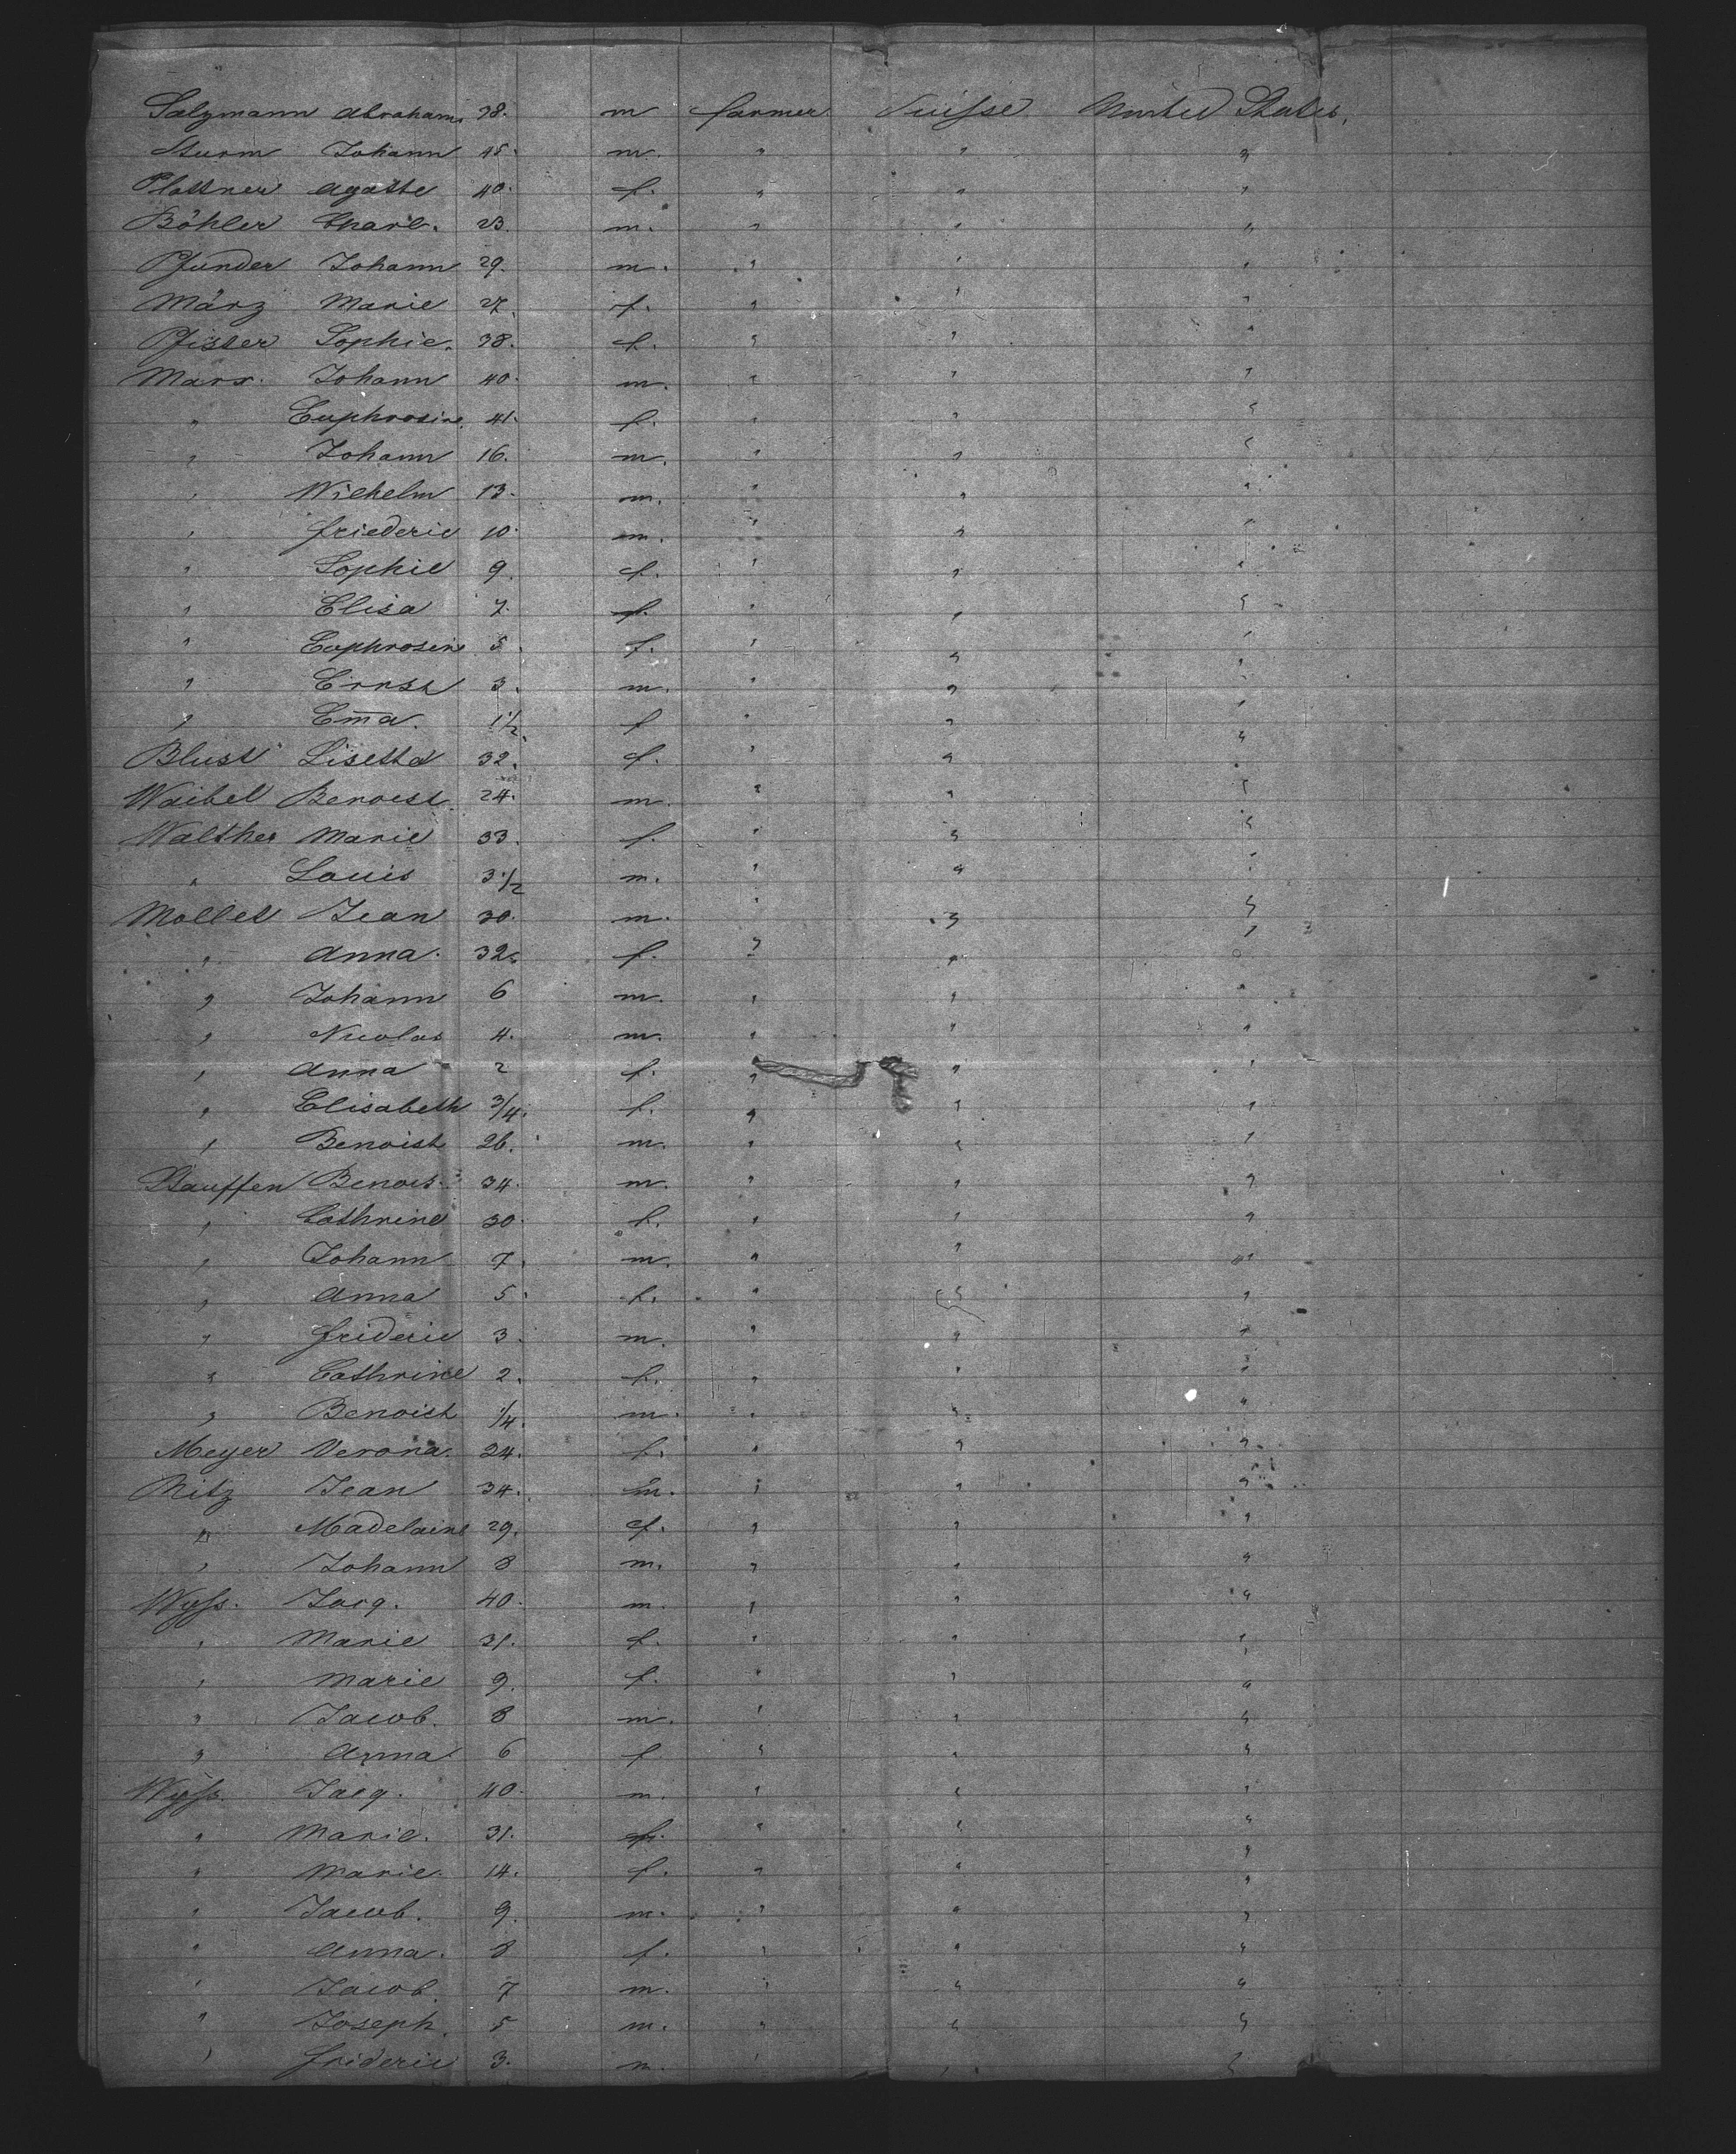 Salzmann Abraham 38. m farmer Suisse United States.
Sturm Johann 45. m. " " "
Plattner Agatte 40. f. " " "
Böhler Charl. 23. m. " " "
Pfunder Johann 29. m. " " "
März Marie 27. f. " " "
Pfister Sophie. 38. f. " " "
Marx. Johann 40. m. " " "
" Euphrosine 41. f. " " "
" Johann 16. m. " " "
" Wilhelm 13. m. " " "
" friederic 10. m. " " "
" Sophie 9. f. " " "
" Elisa 7. f. " " "
" Euphrosine 5. f. " " "
" Ernst 3. m. " " "
" Em̅a. 1 1/2 f " " "
Blust Lisetta 32. f. " " "
Waibel Benoist 24. m. " " "
Walther Marie 33. f. " " "
" Louis 3 1/2 m. " " "
Mollet Jean 30. m. " " "
" Anna. 32. f. " " "
" Johann 6 m. " " "
" Nicolas 4. m. " " "
" Anna 2 f. " " "
" Elisabeth 3/4. f. " " "
" Benoist 26. m. " " "
Stauffen Benois. 34. m. " " "
" Cathrine 30. f. " " "
" Johann 7. m. " " "
" Anna 5. f. " " "
" frideric 3. m. " " "
" Cathrine 2. f. " " "
" Benoist 1/4. m. " " "
Meyer Verona. 24. f. " " "
Ritz Jean 34. m. " " "
" Madelaine 29. f. " " "
" Johann 8 m. " " "
Wyss. Jacq. 40. m. " " "
" Marie 31. f. " " "
" Marie 9. f. " " "
" Jacob. 8 m. " " "
" Anna 6 f " " "
Wyss. Jacq. 40. m. " " "
" Marie. 31. f. " " "
" Marie. 14. f. " " "
" Jacob. 9. m. " " "
" Anna. 8 f. " " "
" Jacob. 7 m. " " "
" Joseph. 5 m. " " "
" frideric 3. m. " " "